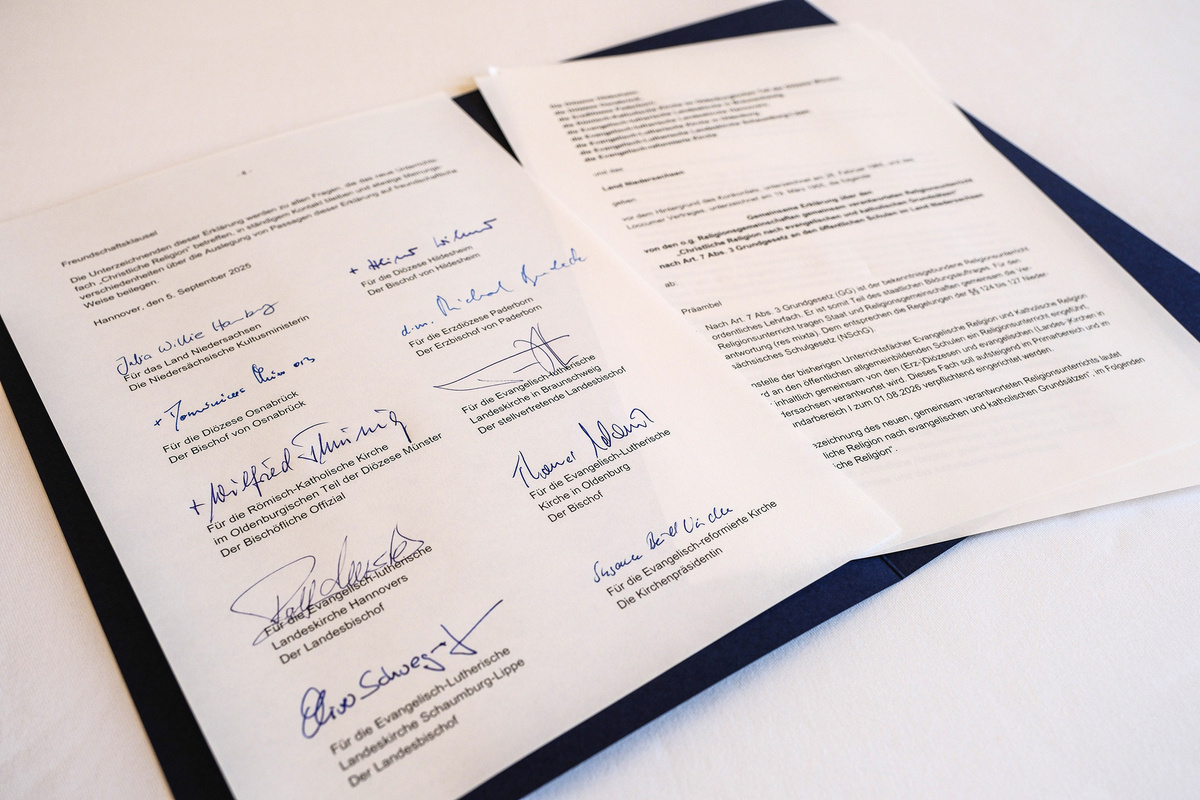 - 4 -
Freundschaftsklausel
Die Unterzeichnenden dieser Erklärung werden zu allen Fragen, die das neue Unterrichts-
fach „Christliche Religion" betreffen, in ständigem Kontakt bleiben und etwaige Meinungs-
verschiedenheiten über die Auslegung von Passagen dieser Erklärung auf freundschaftliche
Weise beilegen.
Hannover, den 5. September 2025
Julia Willie Hamburg
Für das Land Niedersachsen
Die Niedersächsische Kultusministerin
+ Dominicus
Für die Diözese Osnabrück
Der Bischof von Osnabrück
+ Wilfried Theising
Für die Römisch-Katholische Kirche
im Oldenburgischen Teil der Diözese Münster
Der Bischöfliche Offizial
Für die Evangelisch-lutherische
Landeskirche Hannovers
Der Landesbischof
Für die Evangelisch-Lutherische
Landeskirche Schaumburg-Lippe
Der Landesbischof
+ Heiner Wilmer
Für die Diözese Hildesheim
Der Bischof von Hildesheim
Für die Erzdiözese Paderborn
Der Erzbischof von Paderborn
Für die Evangelisch-lutherische
Landeskirche in Braunschweig
Der stellvertretende Landesbischof
Thomas Adomeit
Für die Evangelisch-Lutherische
Kirche in Oldenburg
Der Bischof
Für die Evangelisch-reformierte Kirche
Die Kirchenpräsidentin
die Diözese Hildesheim,
die Diözese Osnabrück,
die Erzdiözese Paderborn,
die Römisch-Katholische Kirche im Oldenburgischen Teil der Diözese Münster,
die Evangelisch-lutherische Landeskirche in Braunschweig,
die Evangelisch-lutherische Landeskirche Hannovers,
die Evangelisch-Lutherische Kirche in Oldenburg,
die Evangelisch-Lutherische Landeskirche Schaumburg-Lippe,
die Evangelisch-reformierte Kirche
und das
Land Niedersachsen
geben
vor dem Hintergrund des Konkordats, unterzeichnet am 26. Februar 1965, und des
Loccumer Vertrages, unterzeichnet am 19. März 1955, die folgende
Gemeinsame Erklärung über den
von den o.g. Religionsgemeinschaften gemeinsam verantworteten Religionsunterricht
„Christliche Religion nach evangelischen und katholischen Grundsätzen"
nach Art. 7 Abs. 3 Grundgesetz an den öffentlichen Schulen im Land Niedersachsen
ab:
Präambel
Nach Art. 7 Abs. 3 Grundgesetz (GG) ist der bekenntnisgebundene Religionsunterricht
ordentliches Lehrfach. Er ist somit Teil des staatlichen Bildungsauftrages. Für den
Religionsunterricht tragen Staat und Religionsgemeinschaften gemeinsam die Ver-
antwortung (res mixta). Dem entsprechen die Regelungen der §§ 124 bis 127 Nieder-
sächsisches Schulgesetz (NSchG).
nstelle der bisherigen Unterrichtsfächer Evangelische Religion und Katholische Religion
rd an den öffentlichen allgemeinbildenden Schulen ein Religionsunterricht eingeführt,
inhaltlich gemeinsam von den (Erz-)Diözesen und evangelischen (Landes-)Kirchen in
dersachsen verantwortet wird. Dieses Fach soll aufsteigend im Primarbereich und im
undarbereich I zum 01.08.2026 verpflichtend eingerichtet werden.
zeichnung des neuen, gemeinsam verantworteten Religionsunterrichts lautet
liche Religion nach evangelischen und katholischen Grundsätzen", im Folgenden
iche Religion".